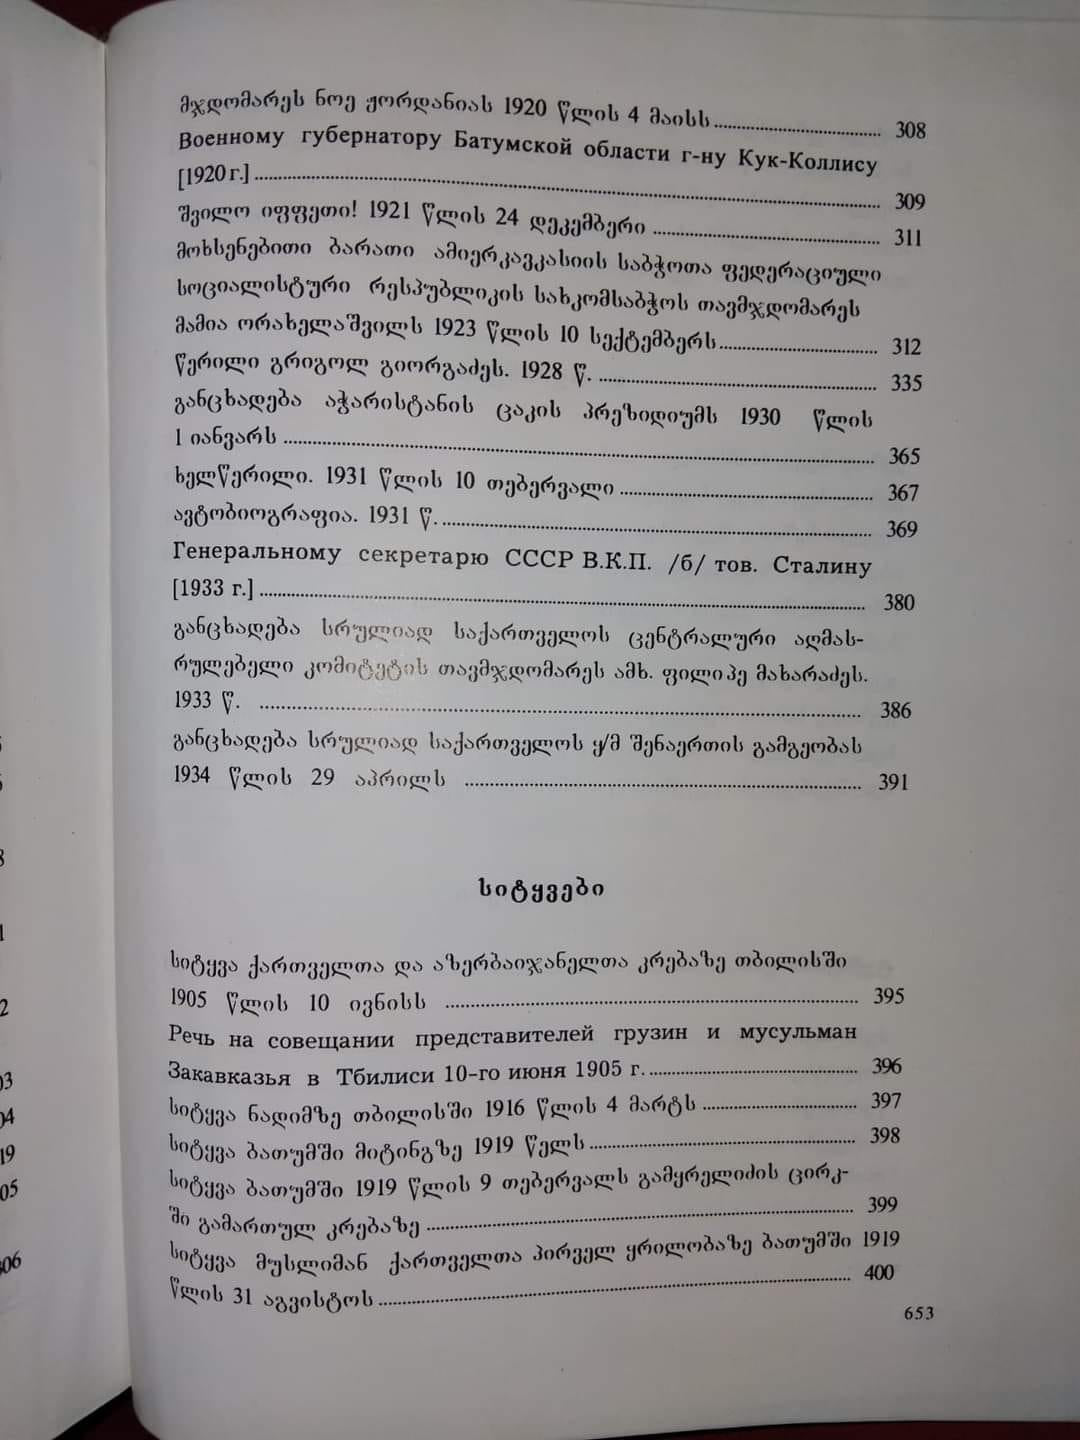 მჯდომარეს ნოე ჟორდანიას 1920 წლის 4 მაისს ........ 308
Военному губернатору Батумской области г-ну Кук-Коллису
[1920 г.] ........ 309
შვილო იფფეთი! 1921 წლის 24 დეკემბერი ........ 311
მოხსენებითი ბარათი ამიერკავკასიის საბჭოთა ფედერაციული
სოციალისტური რესპუბლიკის სახკომსაბჭოს თავმჯდომარეს
მამია ორახელაშვილს 1923 წლის 10 სექტემბერს ........ 312
წერილი გრიგოლ გიორგაძეს. 1928 წ. ........ 335
განცხადება აჭარისტანის ცაკის პრეზიდიუმს 1930 წლის
1 იანვარს ........ 365
ხელწერილი. 1931 წლის 10 თებერვალი ........ 367
ავტობიოგრაფია. 1931 წ. ........ 369
Генеральному секретарю СССР В.К.П. /б/ тов. Сталину
[1933 г.] ........ 380
განცხადება სრულიად საქართველოს ცენტრალური აღმას-
რულებელი კომიტეტის თავმჯდომარეს ამხ. ფილიპე მახარაძეს.
1933 წ. ........ 386
განცხადება სრულიად საქართველოს ყ/მ შენაერთის გამგეობას
1934 წლის 29 აპრილს ........ 391
სიტყვები
სიტყვა ქართველთა და აზერბაიჯანელთა კრებაზე თბილისში
1905 წლის 10 ივნისს ........ 395
Речь на совещании представителей грузин и мусульман
Закавказья в Тбилиси 10-го июня 1905 г. ........ 396
სიტყვა ნადიმზე თბილისში 1916 წლის 4 მარტს ........ 397
სიტყვა ბათუმში მიტინგზე 1919 წელს ........ 398
სიტყვა ბათუმში 1919 წლის 9 თებერვალს გამყრელიძის ცირკ-
ში გამართულ კრებაზე ........ 399
სიტყვა მუსლიმან ქართველთა პირველ ყრილობაზე ბათუმში 1919
წლის 31 აგვისტოს ........ 400
653